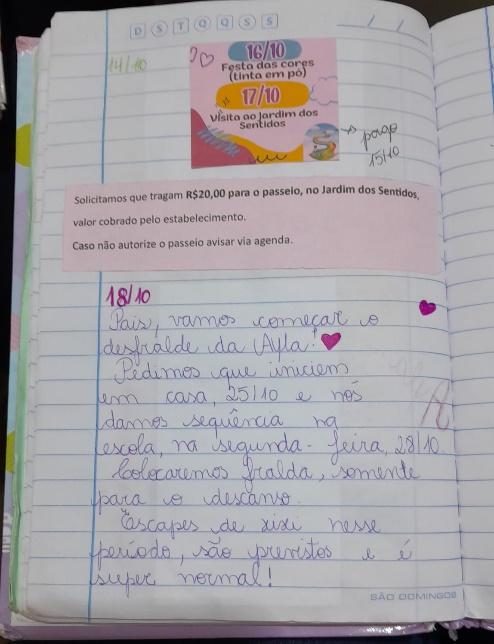 D S T Q Q S S
14/10
16/10
Festa das cores
(tinta em pó)
17/10
Visita ao Jardim dos
Sentidos
pago
15/10
Solicitamos que tragam R$20,00 para o passeio, no Jardim dos Sentidos,
valor cobrado pelo estabelecimento.
Caso não autorize o passeio avisar via agenda.
18/10
Pais, vamos começar o
desfralde da Ayla!
Pedimos que iniciem
em casa, 25/10 e nós
damos sequência na
escola, na segunda-feira, 28/10.
Colocaremos fralda, somente
para o descanso.
Escapes de xixi nesse
período, são previstos e é
super normal!
SÃO DOMINGOS